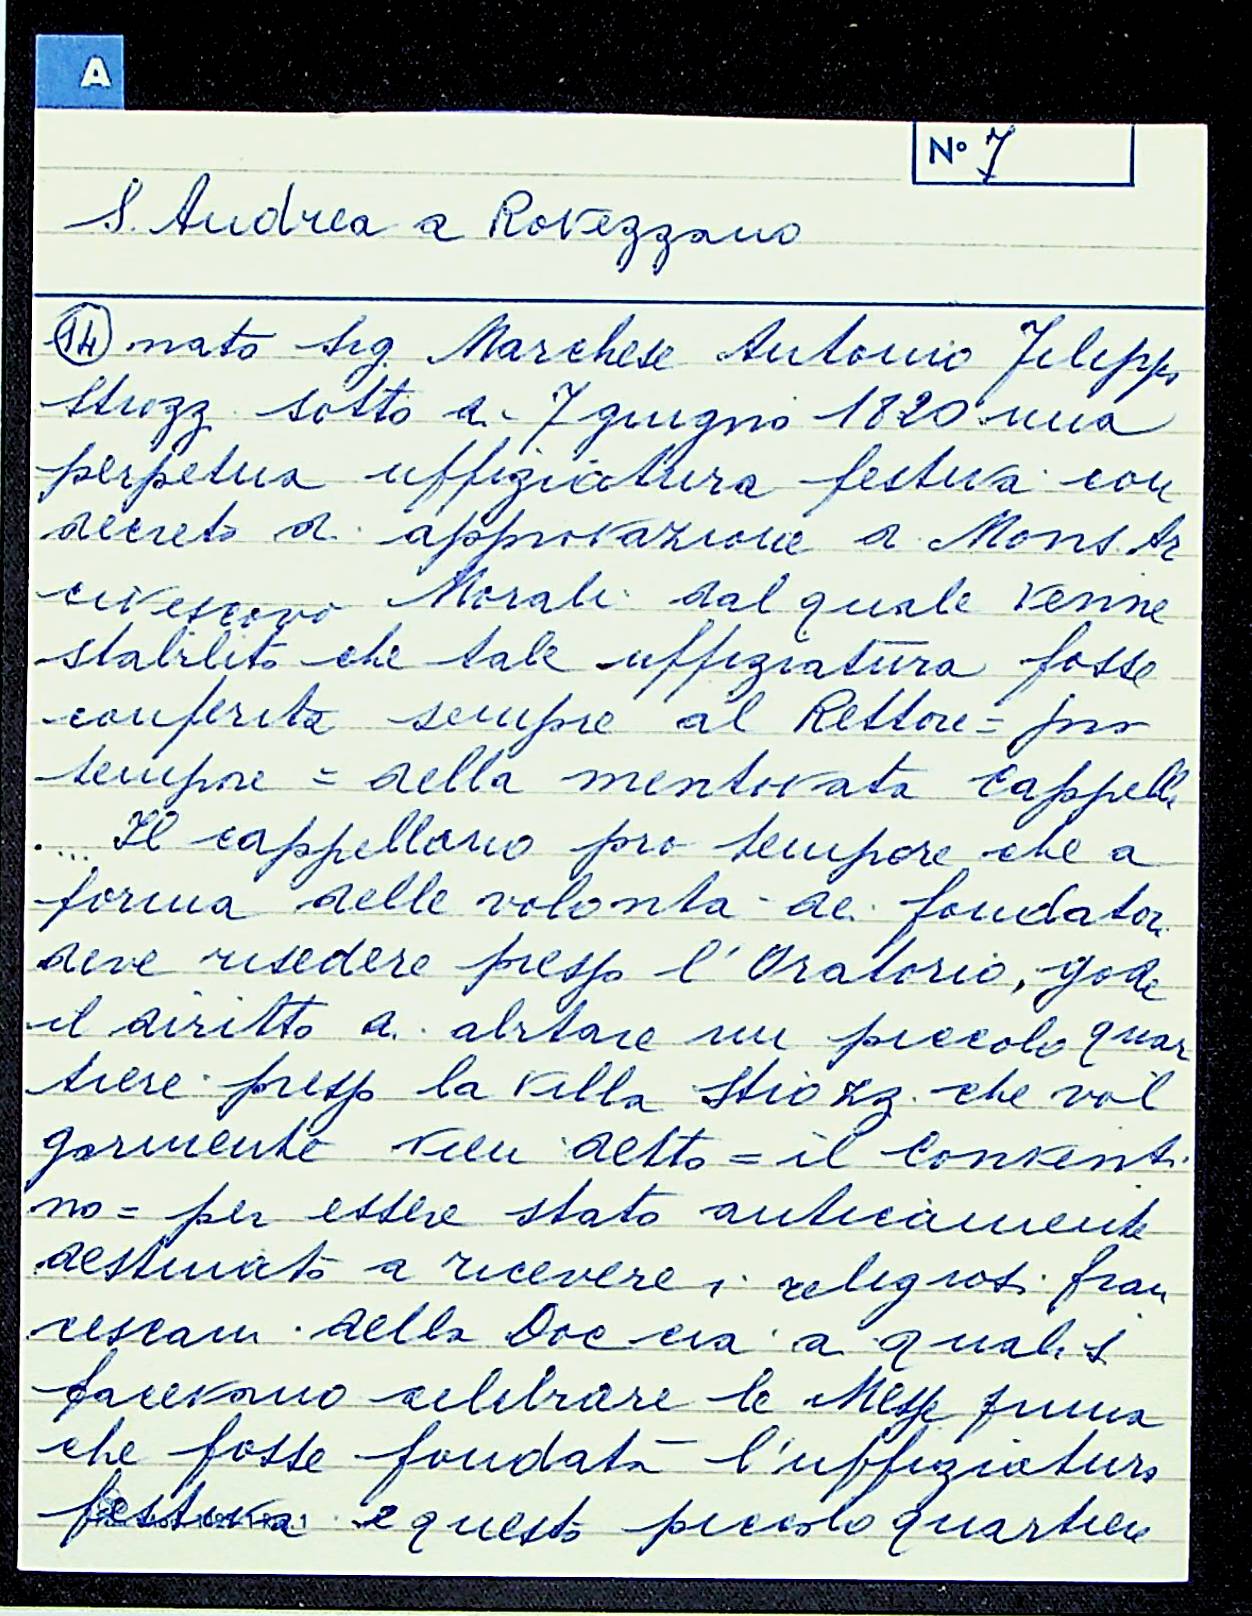 A
N° 7
S. Andrea a Rovezzano
(14) nato Sig. Marchese Antonio Filippo
Stiozzi sotto di 7 giugno 1820 una
perpetua uffiziatura festiva con
decreto di approvazione di Mons. Ar
civescovo Morali dal quale venne
stabilito che tale uffiziatura fosse
conferita sempre al Rettore = pro
tempore = della mentovata Cappella
.... Il cappellano pro tempore che a
forma delle volontà dei fondatori
deve risedere presso l'Oratorio, gode
il diritto di abitare un piccolo quar
tiere presso la villa Stiozzi che vol
garmente vien detto = il Conventi
no = per essere stato anticamente
destinato a ricevere i religiosi fran
cescani della Doccia ai quali si
facevano celebrare le Messe prima
che fosse fondata l'uffiziatura
festiva e questo piccolo quartiere